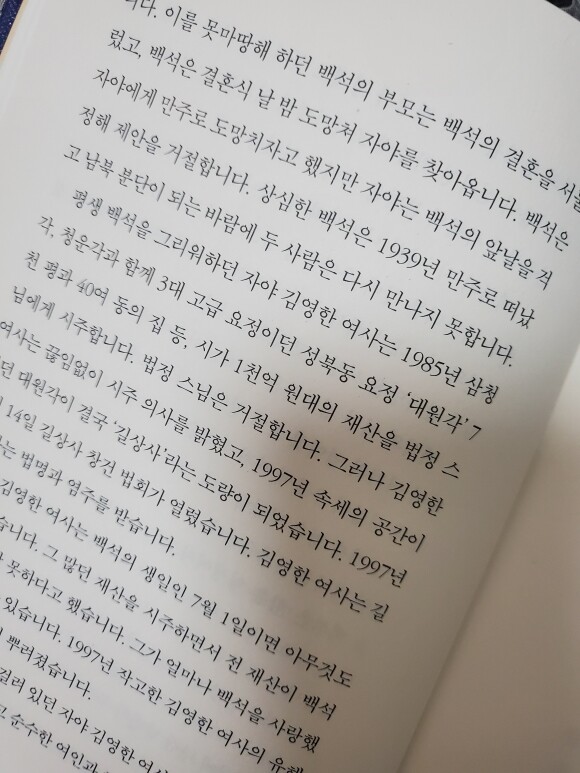 니다. 이를 못마땅해 하던 백석의 부모는 백석의 결혼을 서둘
렀고, 백석은 결혼식 날 밤 도망쳐 자야를 찾아옵니다. 백석은
자야에게 만주로 도망치자고 했지만 자야는 백석의 앞날을 걱
정해 제안을 거절합니다. 상심한 백석은 1939년 만주로 떠났
고 남북 분단이 되는 바람에 두 사람은 다시 만나지 못합니다.
평생 백석을 그리워하던 자야 김영한 여사는 1985년 삼청
각, 청운각과 함께 3대 고급 요정이던 성북동 요정 ‘대원각’ 7
천 평과 40여 동의 집 등, 시가 1천억 원대의 재산을 법정 스
님에게 시주합니다. 법정 스님은 거절합니다. 그러나 김영한
여사는 끊임없이 시주 의사를 밝혔고, 1997년 속세의 공간이
던 대원각이 결국 ‘길상사’라는 도량이 되었습니다. 1997년
14일 길상사 창건 법회가 열렸습니다. 김영한 여사는 길
는 법명과 염주를 받습니다.
김영한 여사는 백석의 생일인 7월 1일이면 아무것도
습니다. 그 많던 재산을 시주하면서 전 재산이 백석
못하다고 했습니다. 그가 얼마나 백석을 사랑했
있습니다. 1997년 작고한 김영한 여사의 유해
뿌려졌습니다.
걸러 있던 자야 김영한 여사
고 순수한 여인과